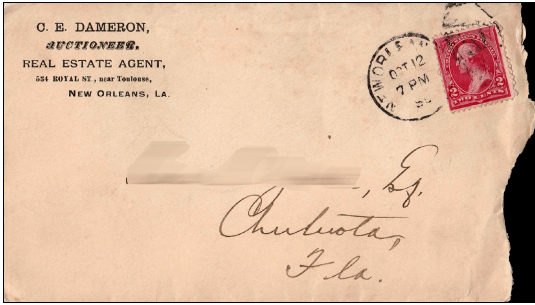 C. E. DAMERON,
AUCTIONEER,
REAL ESTATE AGENT,
534 ROYAL ST., near Toulouse,
NEW ORLEANS, LA.
NEW ORLEAN
OCT 12
7 PM
2 TWO CENTS 2
, Esq.
Chuluota,
Fla.